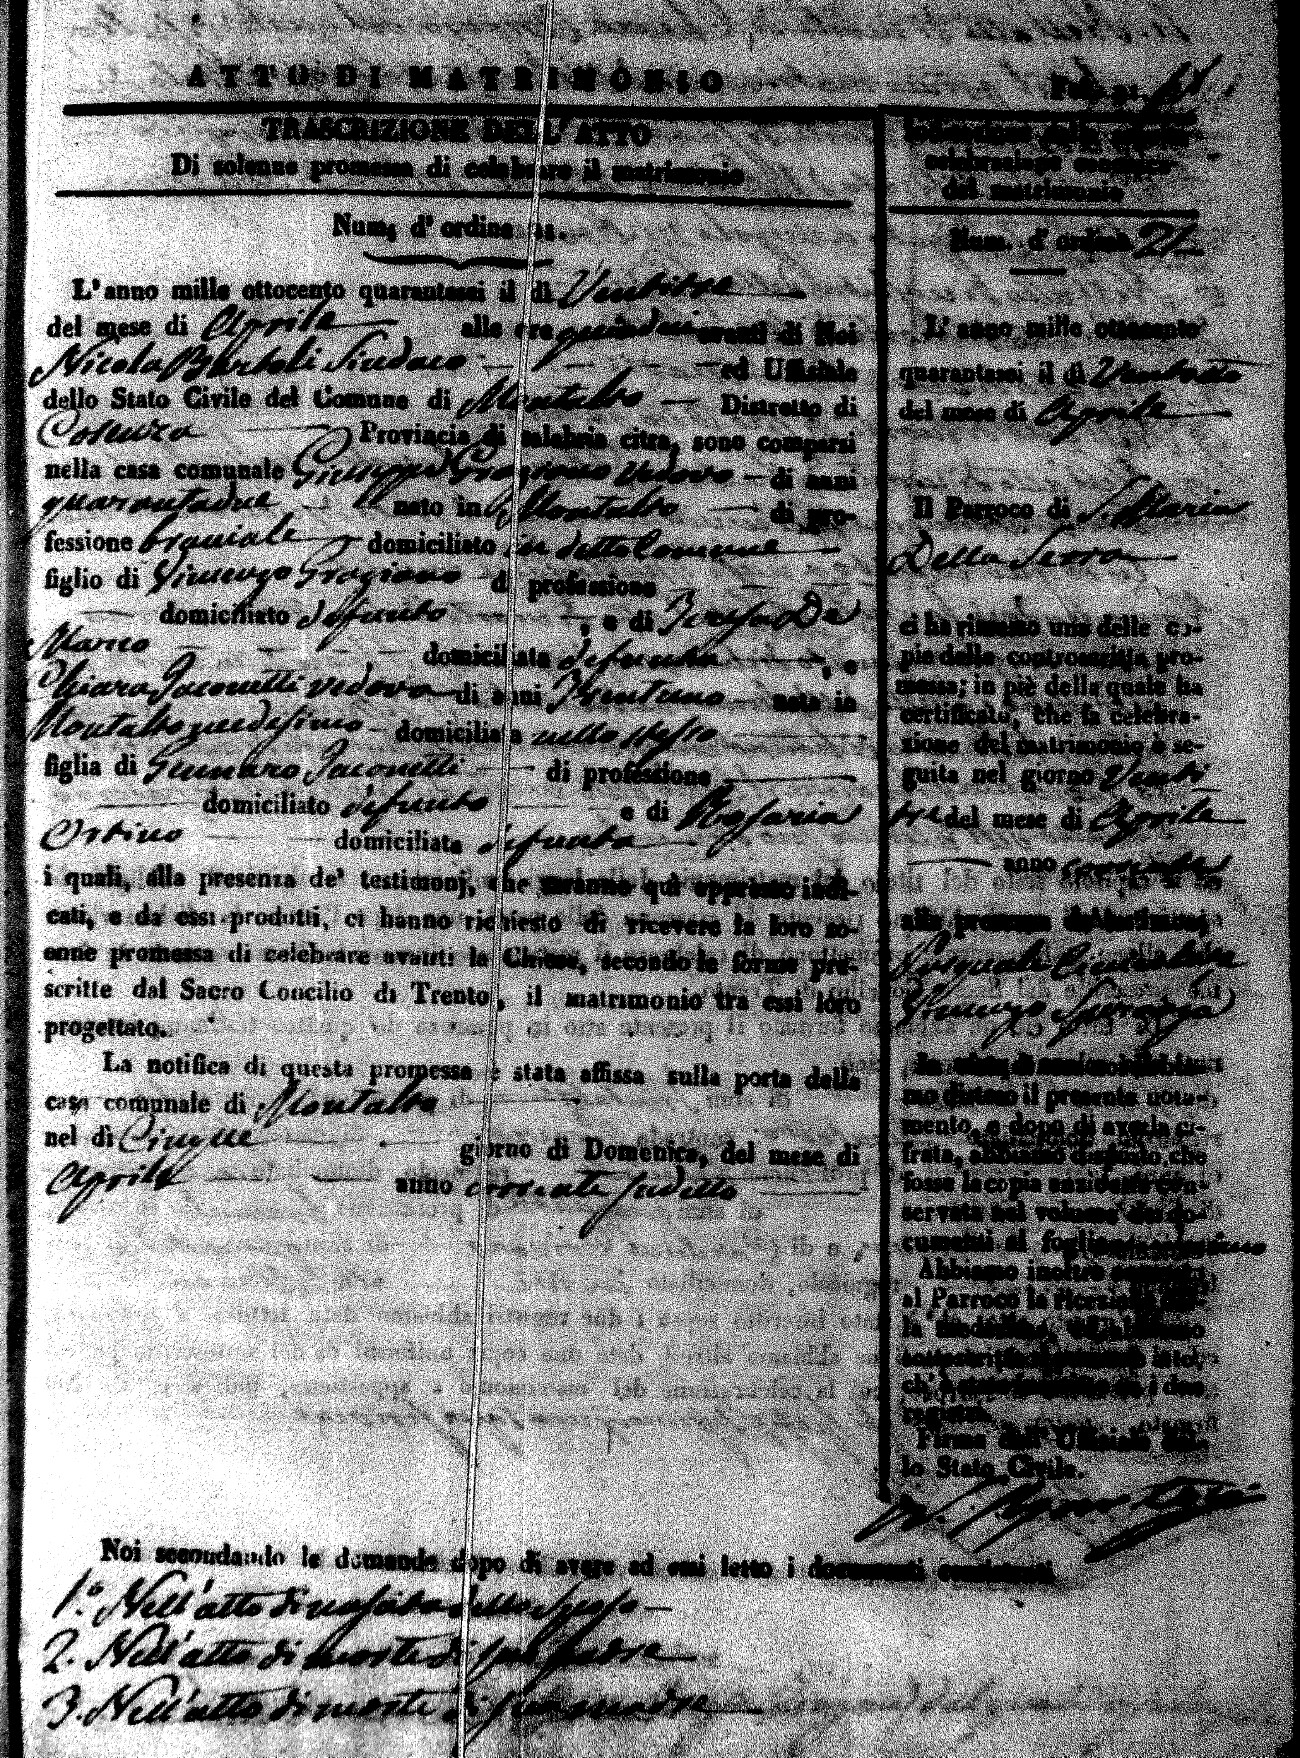 ATTO DI MATRIMONIO
TRASCRIZIONE DELL' ATTO
Di solenne promessa di celebrare il matrimonio
Num. d' ordine
L'anno mille ottocento quarantasei il dì Ventitre
del mese di Aprile alle ore quindeci avanti di Noi
Nicola Bartoli Sindaco ed Uffiziale
dello Stato Civile del Comune di Montalto Distretto di
Cosenza Provincia di calabria citra, sono comparsi
nella casa comunale Giuseppe Graziano vedovo di anni
quarantadue nato in Montalto di pro-
fessione braciale domiciliato in detto Comune
figlio di Vincenzo Graziano di professione
domiciliato defunto , e di Teresa De
Marco domiciliata defunta , e
Chiara Jaconetti vedova di anni Trentuno nata in
Montalto medesimo domiciliata nello stesso
figlia di Gennaro Jaconetti di professione
domiciliato defunto e di Rosaria
domiciliata defunta
i quali, alla presenza de' testimonj, che saranno quì appresso indi-
cati, e da essi prodotti, ci hanno richiesto di ricevere la loro so-
enne promessa di celebrare avanti la Chiesa, secondo le forme pre-
scritte dal Sacro Concilio di Trento, il matrimonio tra essi loro
progettato.
La notifica di questa promessa è stata affissa sulla porta della
casa comunale di Montalto
nel dì Cinque giorno di Domenica, del mese di
Aprile anno corrente sudetto
Noi secondando le domande dopo di avere ad essi letto i documenti consistenti
1.° Nell'atto di nascita dello Sposo
2. Nell'atto di morte di suo padre
3. Nell'atto di morte di sua madre
celebrazione canonica
del matrimonio
Num. d' ordine 21
L' anno mille ottocento
quarantasei il dì Ventotto
del mese di Aprile
Il Parroco di S. Maria
Della Serra
ci ha rimesso una delle co-
pie della controscritta pro-
messa; in piè della quale ha
certificato, che la celebra-
zione del matrimonio è se-
guita nel giorno Venti
tre del mese di Aprile
anno corrente
alla presenza de' testimonj
Pasquale
Vincenzo
mo disteso il presente nota-
mento, e dopo di averla ci-
frata, abbiamo disposto che
fosse la copia anzidetta con-
servata nel volume dei do-
cumenti al foglio
Abbiamo inoltre
al Parroco la
registri.
Firma dell' Uffiziale del-
lo Stato Civile.